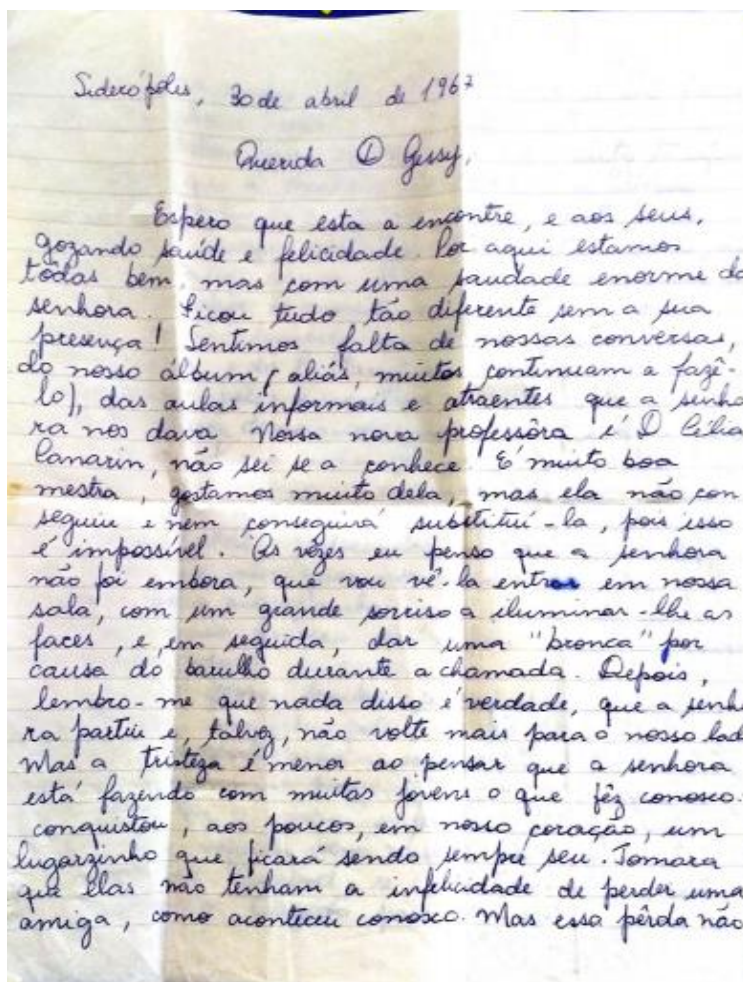 Siderópoles, 30 de abril de 1967
Querida D Gessy,
Espero que esta a encontre, e aos seus,
gozando saúde e felicidade. Por aqui estamos
todas bem, mas com uma saudade enorme da
senhora. Ficou tudo tão diferente sem a sua
presença! Sentimos falta de nossas conversas,
do nosso álbum (aliás, muitos continuam a fazê-
lo), das aulas informais e atraentes que a senho
ra nos dava. Nossa nova professôra é D Célia
Canarin, não sei se a conhece. É muito boa
mestra, gostamos muito dela, mas ela não con
seguiu e nem conseguirá substituí-la, pois isso
é impossível. Às vêzes eu penso que a senhora
não foi embora, que vou vê-la entrar em nossa
sala, com um grande sorriso a iluminar-lhe as
faces, e, em seguida, dar uma "bronca" por
causa do barulho durante a chamada. Depois,
lembro-me que nada disso é verdade, que a senho
ra partiu e, talvez, não volte mais para o nosso lado
Mas a tristeza é menor ao pensar que a senhora
está fazendo com muitas jovens o que fêz conosco.
conquistou, aos poucos, em nosso coração, um
lugarzinho que ficará sendo sempre seu. Tomara
que elas não tenham a infelicidade de perder uma
amiga, como aconteceu conosco. Mas essa pêrda não